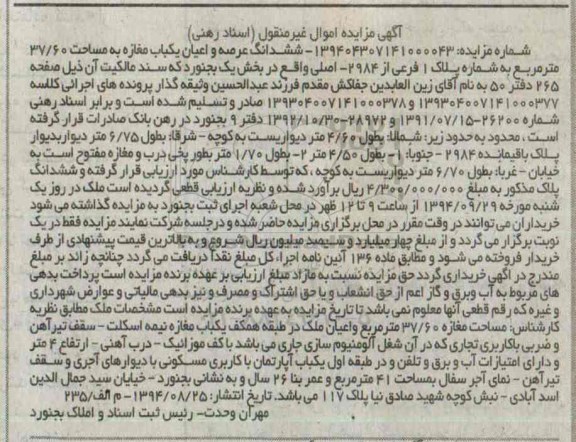 آگهی مزایده اموال غیرمنقول (اسناد رهنی)
شماره مزایده: ۱۳۹۴۰۴۳۰۷۱۴۱۰۰۰۰۴۳- ششدانگ عرصه و اعیان یکباب مغازه به مساحت ۳۷/۶۰
مترمربع به شماره پلاک ۱ فرعی از ۲۹۸۴- اصلی واقع در بخش یک بجنورد که سند مالکیت آن ذیل صفحه
۲۶۵ دفتر ۵۰ به نام آقای زین العابدین جفاکش مقدم فرزند عبدالحسین وثیقه گذار پرونده های اجرائی کلاسه
۱۳۹۳۰۴۰۰۷۱۴۱۰۰۰۳۷۷ و ۱۳۹۳۰۴۰۰۷۱۴۱۰۰۰۳۷۸ صادر و تسلیم شده است و برابر اسناد رهنی
شماره ۲۶۲۰۰-۱۳۹۱/۰۷/۱۵ و ۲۸۹۷۲-۱۳۹۲/۱۰/۳۰ دفتر ۹ بجنورد در رهن بانک صادرات قرار گرفته
است ، محدود به حدود زیر: شمالا: بطول ۴/۶۰ متر دیواریست به کوچه - شرقا: بطول ۶/۷۵ متر دیوار بدیوار
پلاک باقیمانده ۲۹۸۴ - جنوبا: ۱- بطول ۴/۵۰ متر ۲- بطول ۱/۷۰ متر بطور پخی درب و مغازه مفتوح است به
خیابان - غربا: بطول ۶/۷۰ متر دیواریست به کوچه ، که توسط کارشناس مورد ارزیابی قرار گرفته و ششدانگ
پلاک مذکور به مبلغ ۴/۳۰۰/۰۰۰/۰۰۰ ریال برآورد شده و نظریه ارزیابی قطعی گردیده است ملک در روز یک
شنبه مورخه ۱۳۹۴/۰۹/۲۹ از ساعت ۹ تا ۱۲ ظهر در محل شعبه اجرای ثبت بجنورد به مزایده گذاشته می شود
خریداران می توانند در وقت مقرر در محل برگزاری مزایده حاضر شده و در جلسه شرکت نمایند مزایده فقط در یک
نوبت برگزار می گردد و از مبلغ چهار میلیارد و سیصد میلیون ریال شروع و به بالاترین قیمت پیشنهادی از طرف
خریدار فروخته می شود و مطابق ماده ۱۳۶ آئین نامه اجرا، کل مبلغ نقداً دریافت می گردد چنانچه زائد بر مبلغ
مندرج در آگهی خریداری گردد حق مزایده نسبت به مازاد مبلغ ارزیابی بر عهده برنده مزایده است پرداخت بدهی
های مربوط به آب وبرق و گاز اعم از حق انشعاب و یا حق اشتراک و مصرف و نیز بدهی مالیاتی و عوارض شهرداری
و غیره که رقم قطعی آنها معلوم نمی باشد تا تاریخ مزایده به عهده برنده مزایده است مشخصات ملک مطابق نظریه
کارشناس: مساحت مغازه ۳۷/۶۰ مترمربع واعیان ملک در طبقه همکف یکباب مغازه نیمه اسکلت - سقف تیرآهن
و ضربی باکاربری تجاری که در آن شغل آلومنیوم سازی جاری می باشد با کف موزائیک - درب آهنی - ارتفاع ۴ متر
و دارای امتیازات آب و برق و تلفن و در طبقه اول یکباب آپارتمان با کاربری مسکونی با دیوارهای آجری و سقف
تیرآهن - نمای آجر سفال بمساحت ۴۱ مترمربع و عمر بنا ۲۶ سال و به نشانی بجنورد - خیابان سید جمال الدین
اسد آبادی - نبش کوچه شهید صادق نیا پلاک ۱۱۷ می باشد. تاریخ انتشار: ۱۳۹۴/۰۸/۲۵ - م الف/۲۳۵
مهران وحدت- رئیس ثبت اسناد و املاک بجنورد